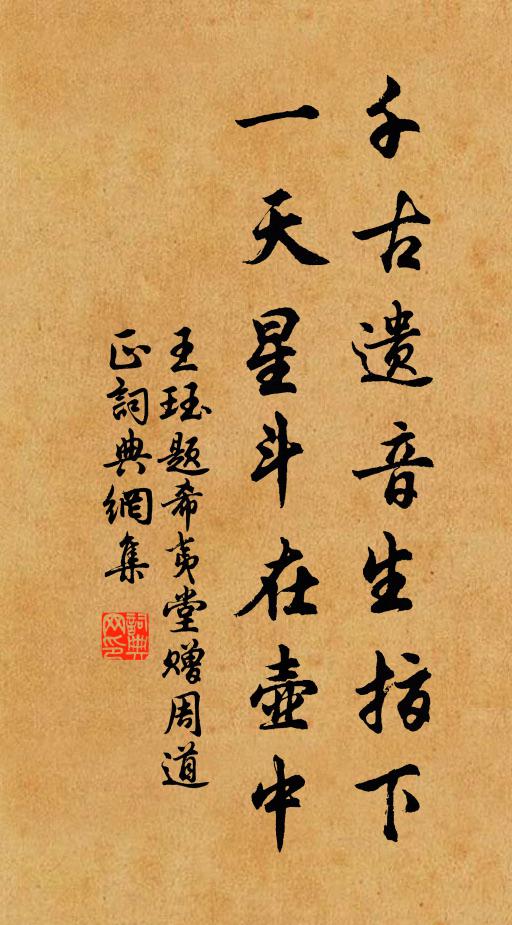 千古遗音生指下
一天星斗在壶中
王珏题希夷堂赠周道
正詞典網集
詞典
网印